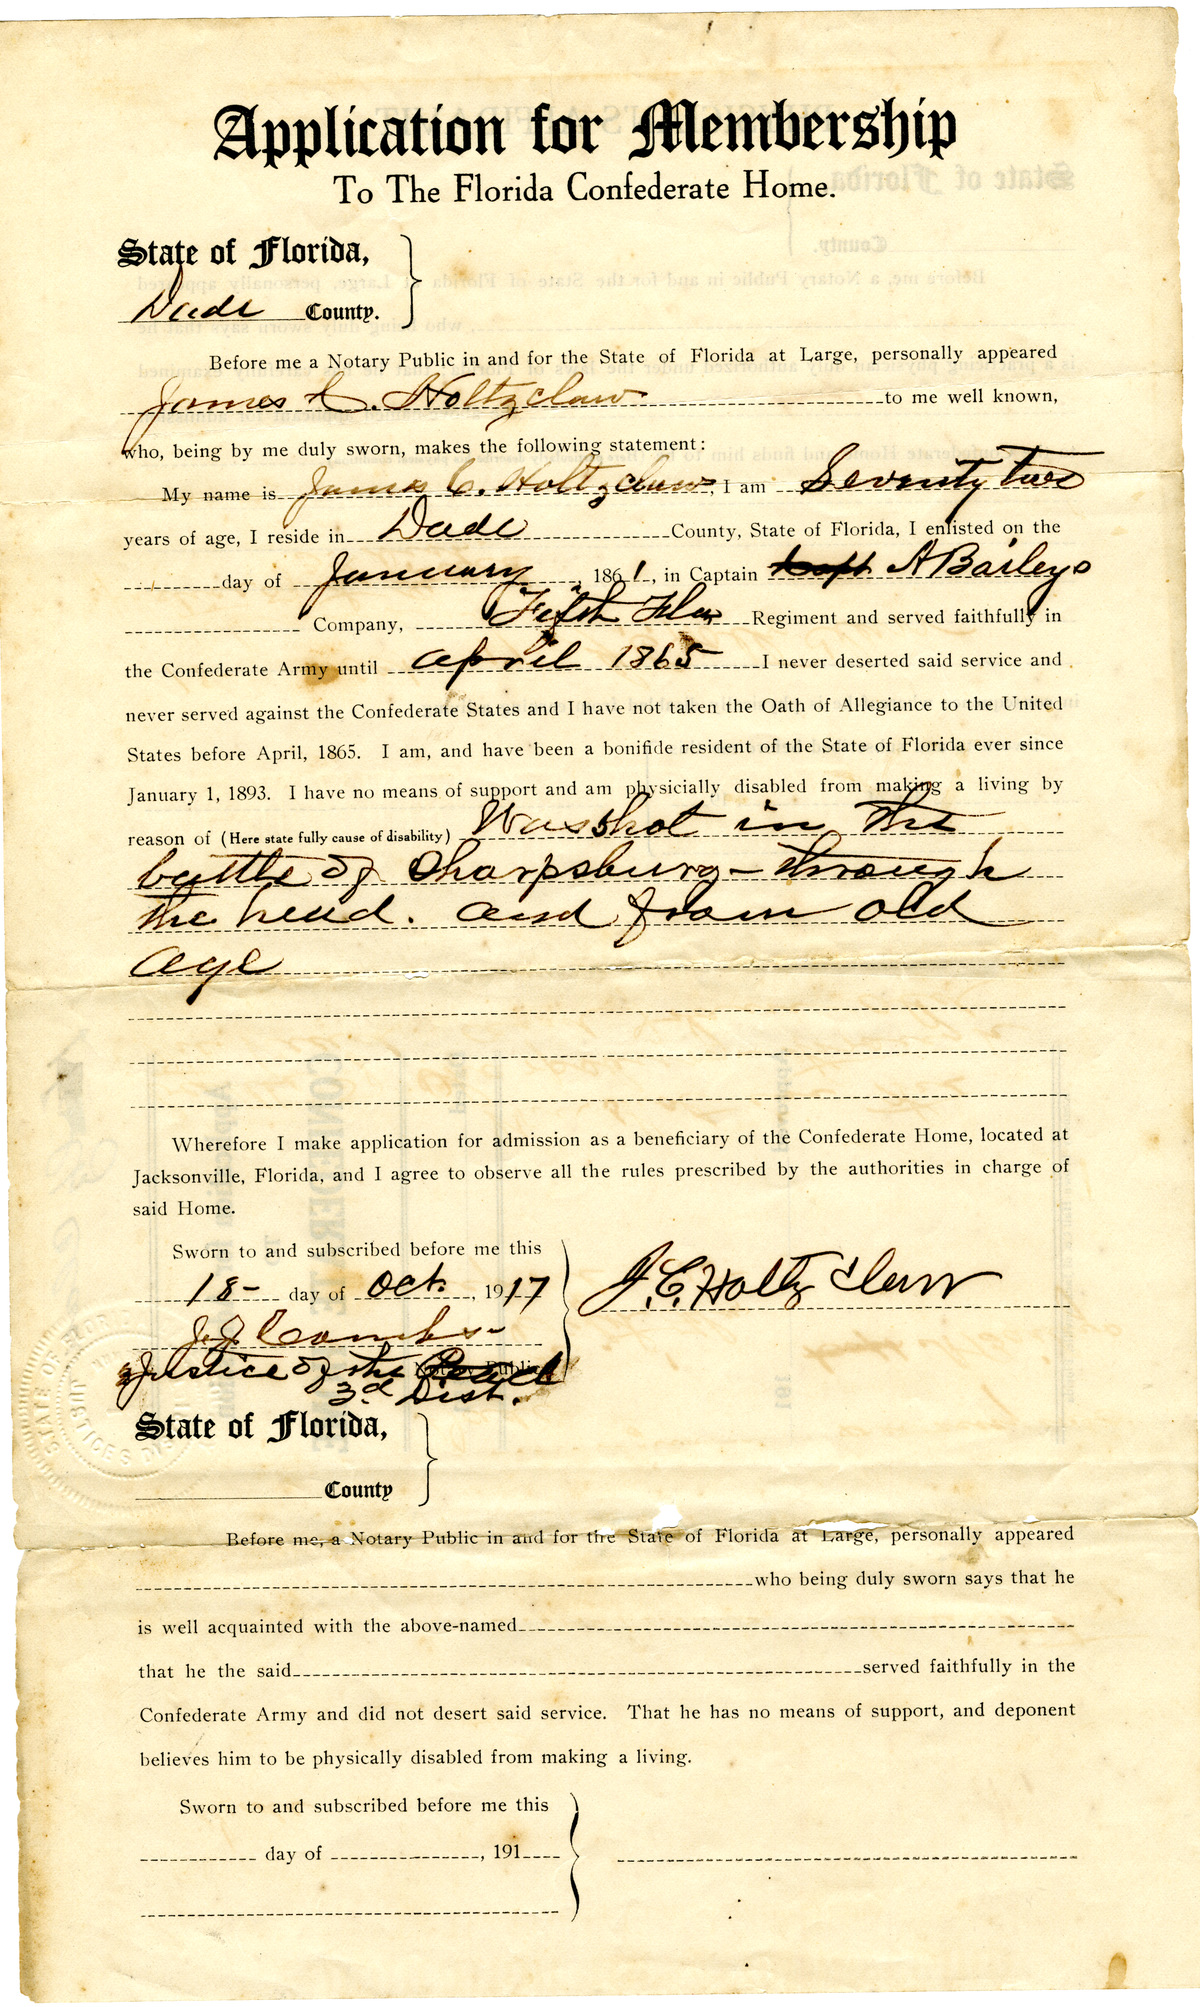 Application for Membership
To The Florida Confederate Home.
State of Florida,
Dade County.
Before me a Notary Public in and for the State of Florida at Large, personally appeared
James C. Holtzclaw to me well known,
who, being by me duly sworn, makes the following statement:
My name is James C. Holtzclaw, I am Seventy two
years of age, I reside in Dade County, State of Florida, I enlisted on the
day of January, 1861, in Captain A Baileys
Company, Fifth Fla Regiment and served faithfully in
the Confederate Army until april 1865 I never deserted said service and
never served against the Confederate States and I have not taken the Oath of Allegiance to the United
States before April, 1865. I am, and have been a bonifide resident of the State of Florida ever since
January 1, 1893. I have no means of support and am physicially disabled from making a living by
reason of (Here state fully cause of disability) Was shot in the
battle of Sharpsburg - through
the head. and from old
age
Wherefore I make application for admission as a beneficiary of the Confederate Home, located at
Jacksonville, Florida, and I agree to observe all the rules prescribed by the authorities in charge of
said Home.
Sworn to and subscribed before me this
18- day of Oct., 1917
J. C. Holtzclaw
J. J. Combs-
Justice of the Peace
3d Dist.
State of Florida,
County
Before me, a Notary Public in and for the State of Florida at Large, personally appeared
who being duly sworn says that he
is well acquainted with the above-named
that he the said served faithfully in the
Confederate Army and did not desert said service. That he has no means of support, and deponent
believes him to be physically disabled from making a living.
Sworn to and subscribed before me this
day of , 191